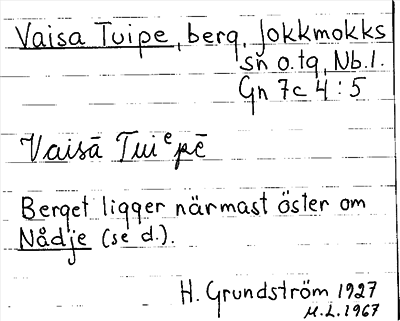 Vaisa Tuipe, berg, Jokkmokks
sn o. tg, Nb. l.
Gn 7c 4 : 5
Vaisā Tuiᵉpē
Berget ligger närmast öster om
Nådje (se d.).
H. Grundström 1927
M.L. 1967